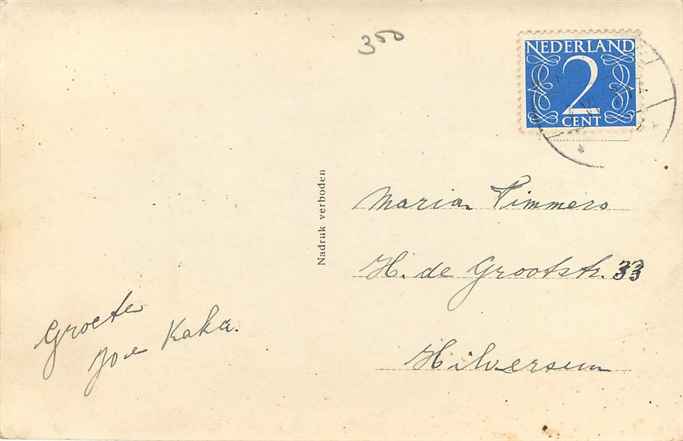 350
NEDERLAND
2
CENT
Nadruk verboden
Maria Timmers
H. de Grootstr. 33
Hilversum
Groete
Joe Kaka.